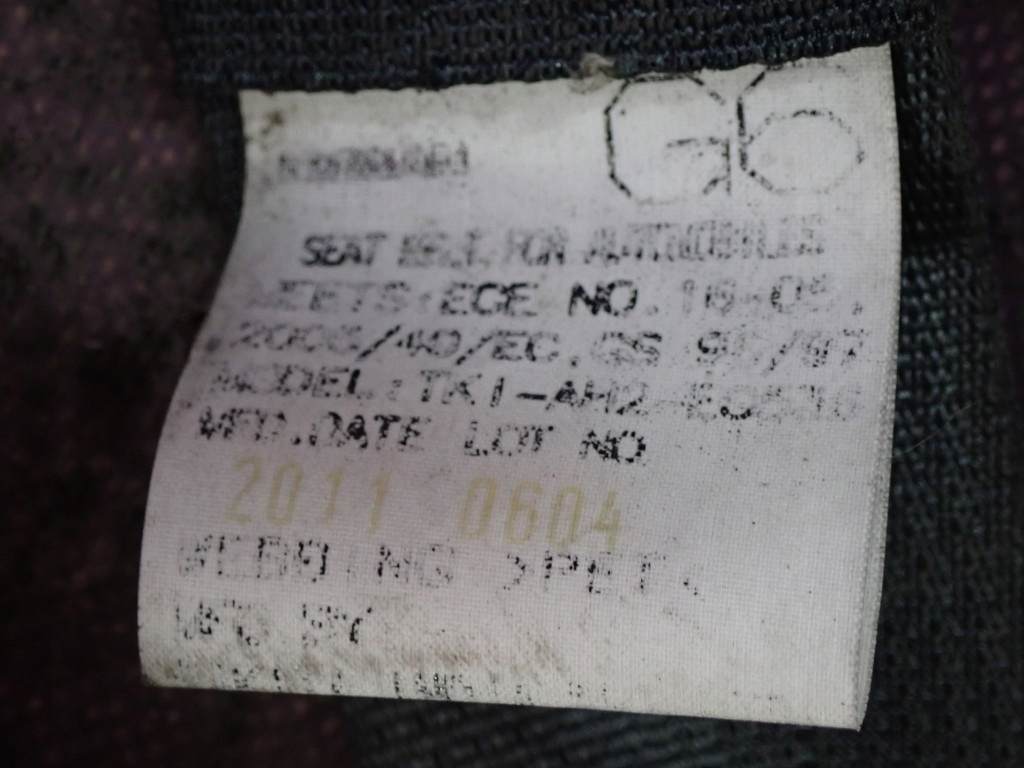 G6
SEAT BELT FOR AUTOMOBILES
MEETS:ECE NO.16-05,
2005/40/EC,
MODEL:TK1-AH2-
MFD.DATE LOT NO
2011 0604
WEBBING >PET<
MFG BY